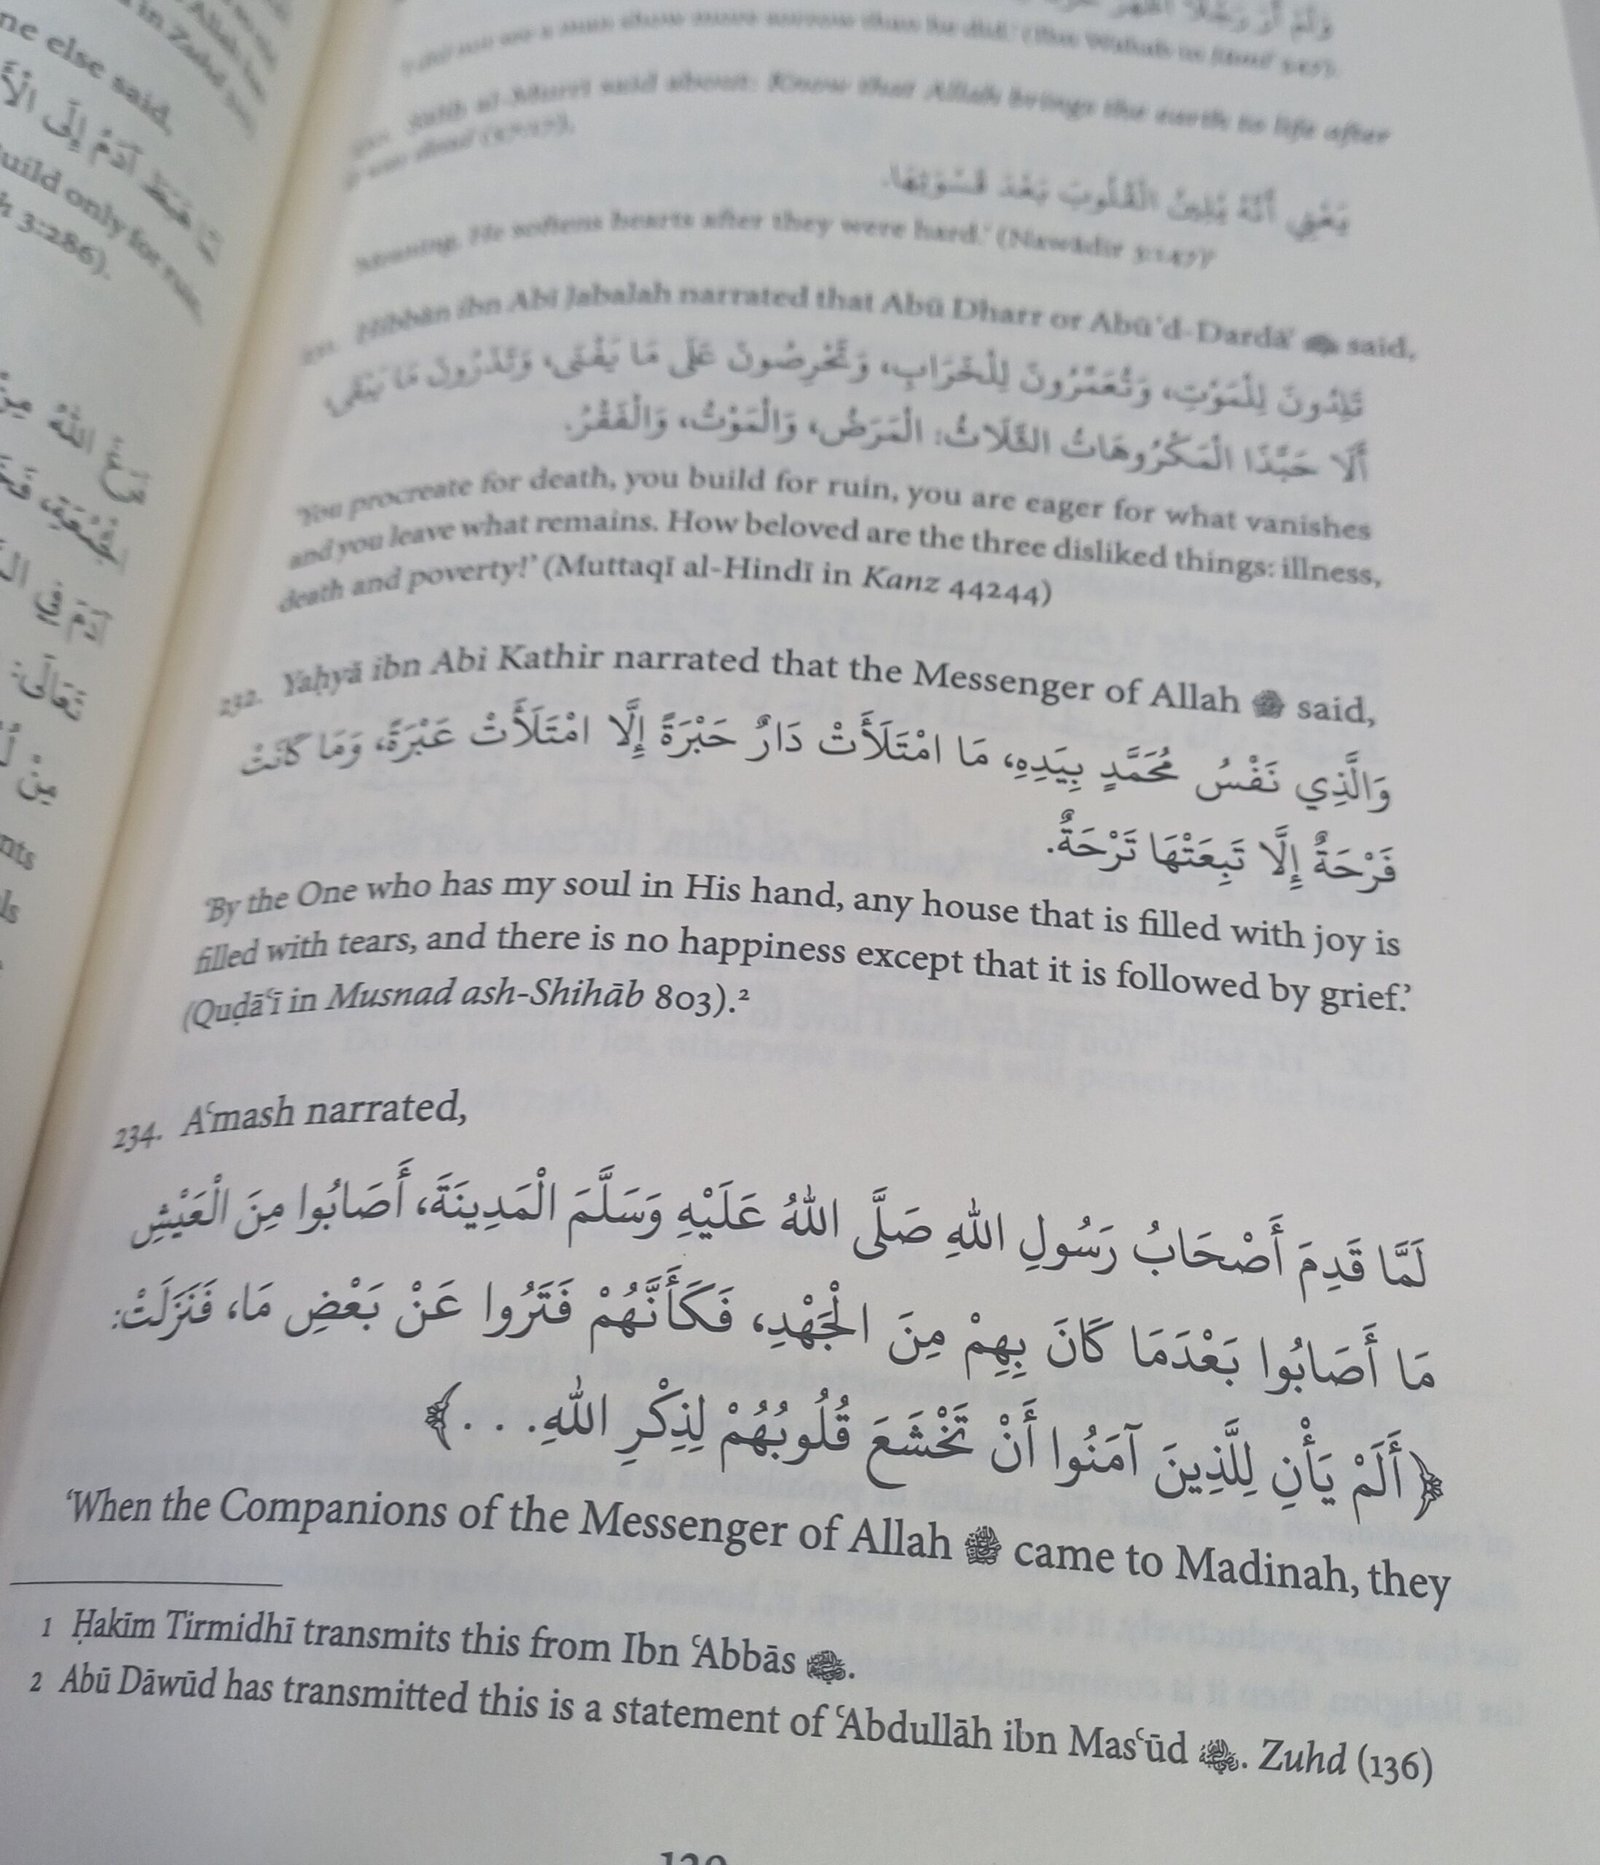 ne else said,
uild only for ruin,
h 3:286).
I did not see a man show more sorrow than he did.' (Ibn Wahab in Jāmiʿ
Ṣāliḥ al-Murrī said about: Know that Allah brings the earth to life after
it was dead (57:17),
يَعْنِي أَنَّهُ يُلِينُ الْقُلُوبَ بَعْدَ قَسْوَتِهَا.
Meaning, He softens hearts after they were hard.' (Nawādir
231. Hibbān ibn Abi Jabalah narrated that Abū Dharr or Abū'd-Dardā' said,
تَلِدُونَ لِلْمَوْتِ، وَتُعَمِّرُونَ لِلْخَرَابِ، وَتَحْرِصُونَ عَلَى مَا يَفْنَى، وَتَذَرُونَ مَا يَبْقَى،
أَلَا حَبَّذَا الْمَكْرُوهَاتُ الثَّلَاثُ: الْمَرَضُ، وَالْمَوْتُ، وَالْفَقْرُ.
'You procreate for death, you build for ruin, you are eager for what vanishes
and you leave what remains. How beloved are the three disliked things: illness,
death and poverty!' (Muttaqī al-Hindī in Kanz 44244)
232. Yaḥyā ibn Abi Kathir narrated that the Messenger of Allah ﷺ said,
وَالَّذِي نَفْسُ مُحَمَّدٍ بِيَدِهِ، مَا امْتَلَأَتْ دَارٌ حَبْرَةً إِلَّا امْتَلَأَتْ عَبْرَةً، وَمَا كَانَتْ
فَرْحَةٌ إِلَّا تَبِعَتْهَا تَرْحَةٌ.
'By the One who has my soul in His hand, any house that is filled with joy is
filled with tears, and there is no happiness except that it is followed by grief.'
(Quḍāʿī in Musnad ash-Shihāb 803).²
234. Aʿmash narrated,
لَمَّا قَدِمَ أَصْحَابُ رَسُولِ اللهِ صَلَّى اللهُ عَلَيْهِ وَسَلَّمَ الْمَدِينَةَ، أَصَابُوا مِنَ الْعَيْشِ
مَا أَصَابُوا بَعْدَمَا كَانَ بِهِمْ مِنَ الْجَهْدِ، فَكَأَنَّهُمْ فَتَرُوا عَنْ بَعْضِ مَا، فَنَزَلَتْ:
﴿أَلَمْ يَأْنِ لِلَّذِينَ آمَنُوا أَنْ تَخْشَعَ قُلُوبُهُمْ لِذِكْرِ اللهِ. . .﴾
'When the Companions of the Messenger of Allah ﷺ came to Madinah, they
1 Ḥakīm Tirmidhī transmits this from Ibn ʿAbbās .
2 Abū Dāwūd has transmitted this is a statement of ʿAbdullāh ibn Masʿūd . Zuhd (136)